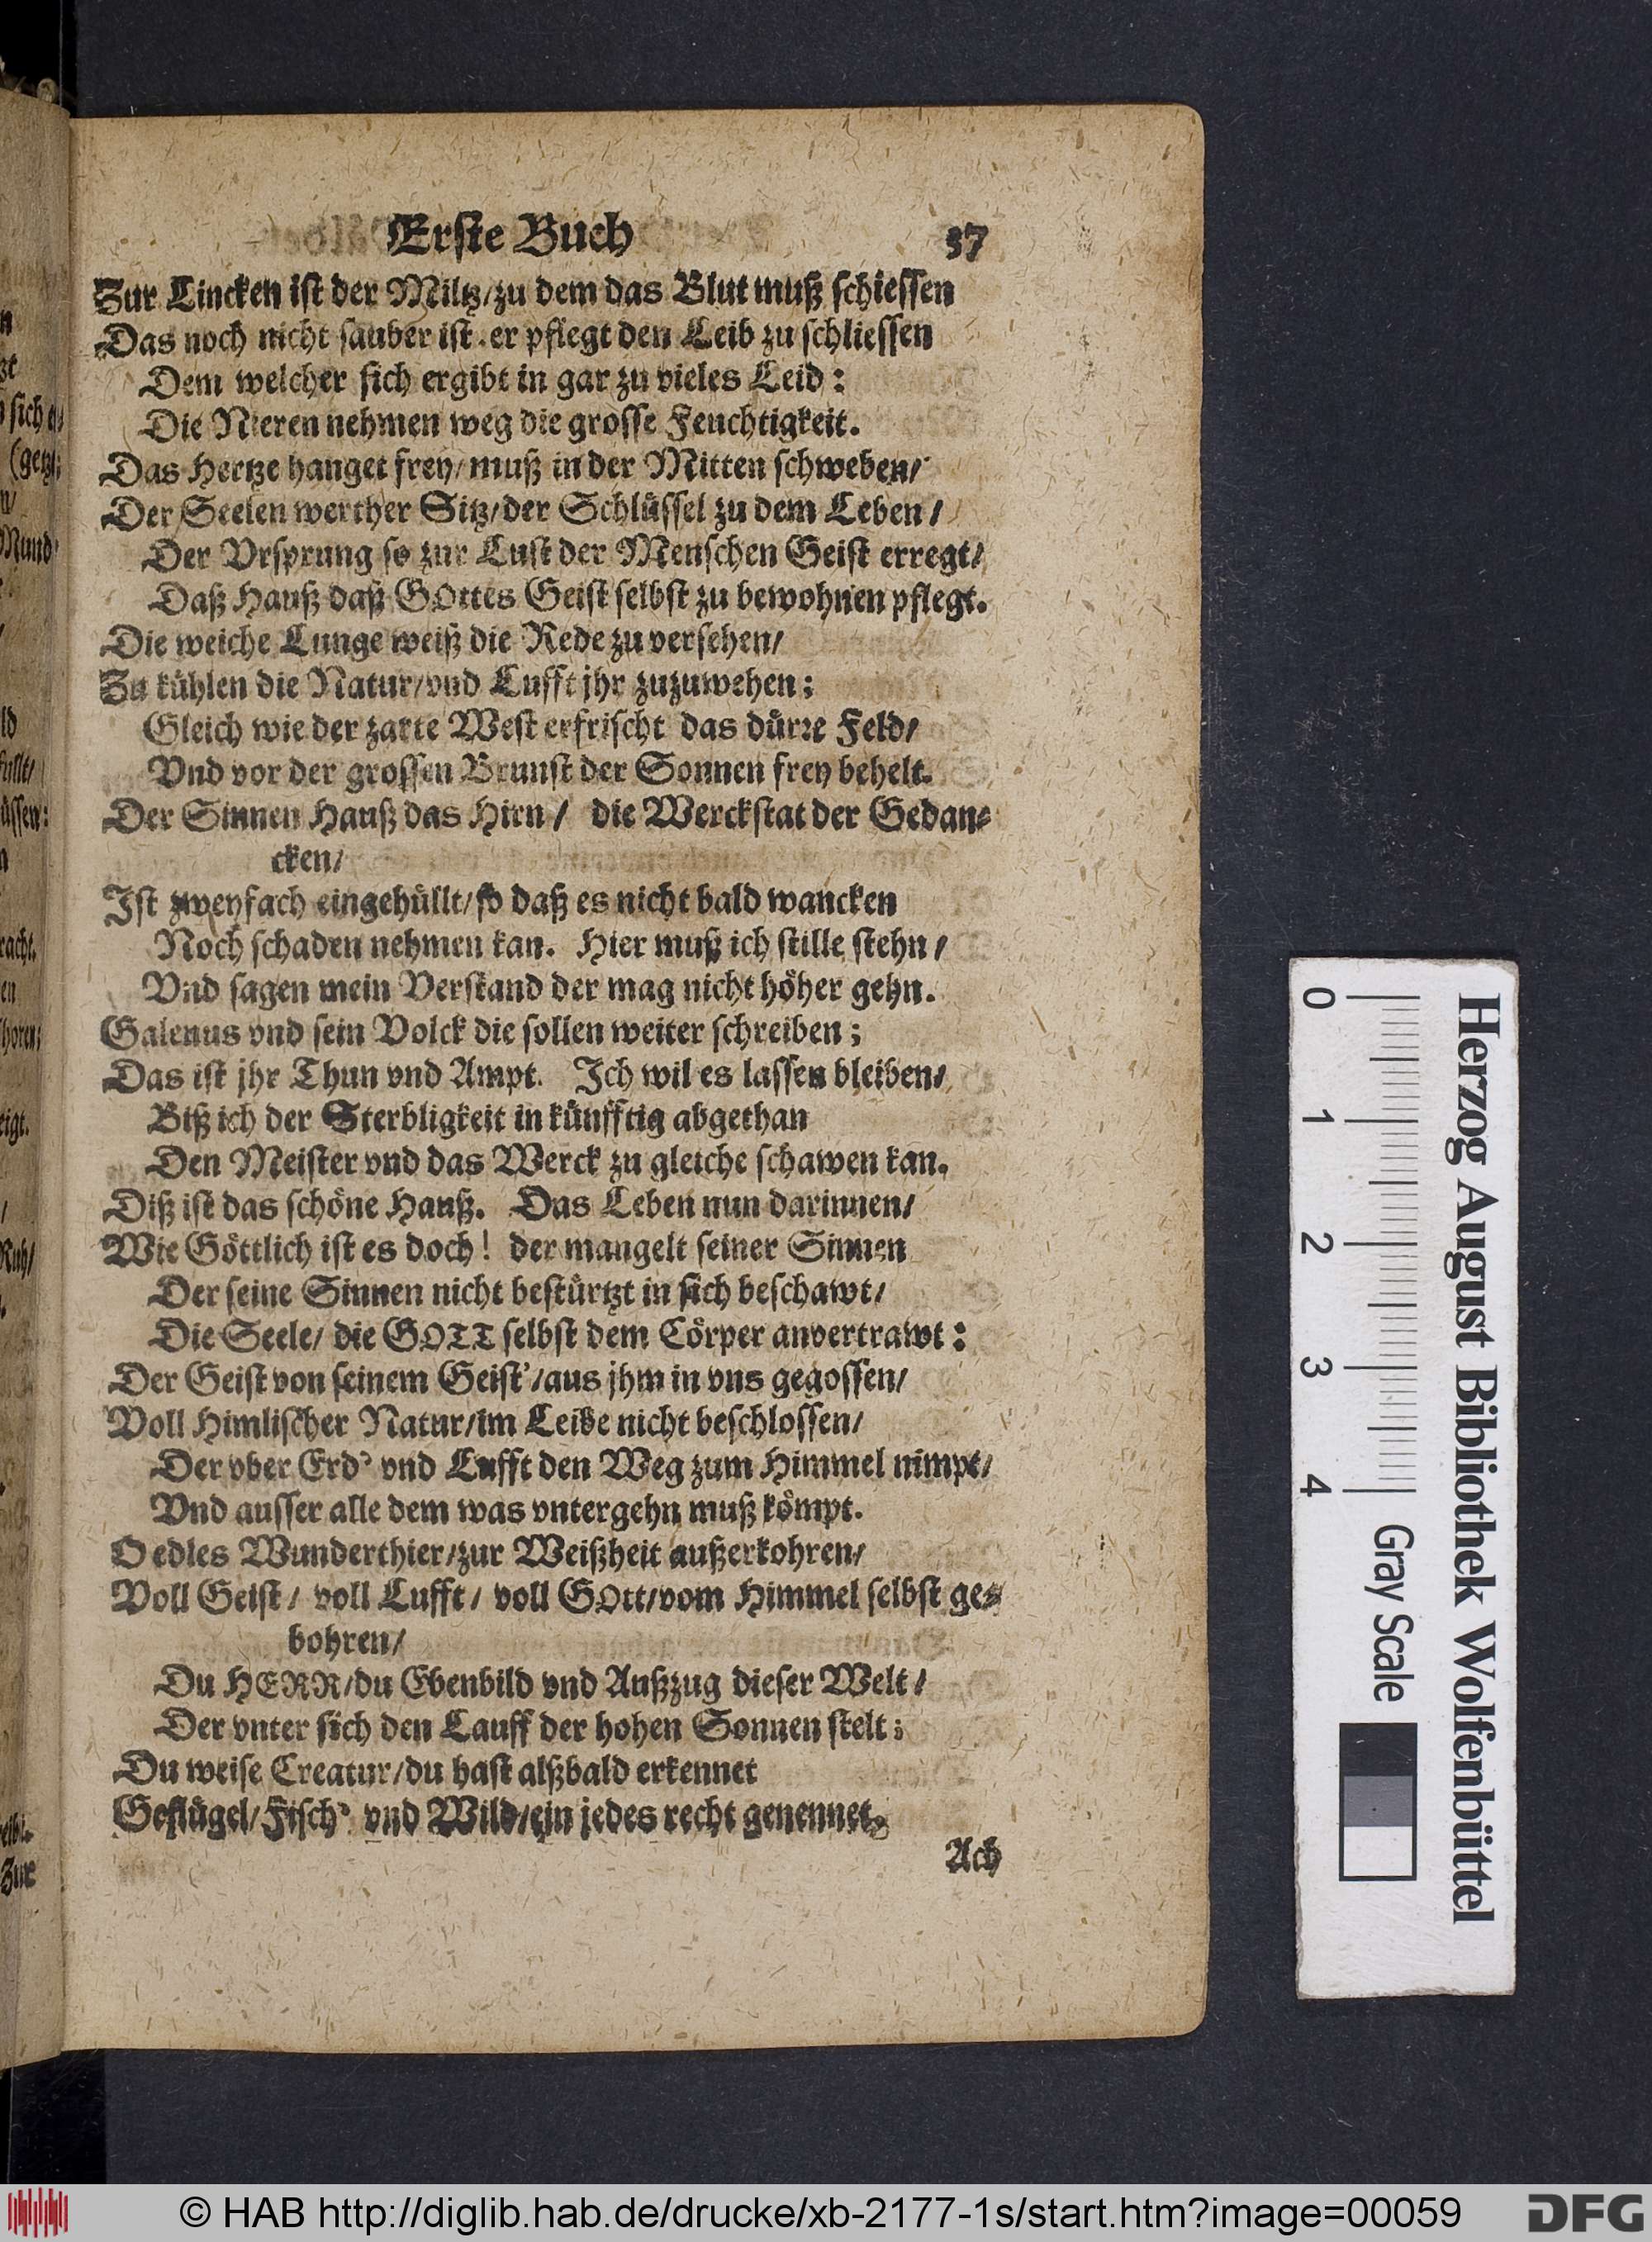 Erste Buch 37
Zur Lincken ist der Miltz/zu dem das Blut muß schiessen
Das noch nicht sauber ist. er pflegt den Leib zu schliessen
Dem welcher sich ergibt in gar zu vieles Leid:
Die Nieren nehmen weg die grosse Feuchtigkeit.
Das Hertze hanget frey/muß in der Mitten schweben/
Der Seelen werther Sitz/der Schlüssel zu dem Leben/
Der Vrsprung so zur Lust der Menschen Geist erregt/
Daß Hauß daß GOttes Geist selbst zu bewohnen pflegt.
Die weiche Lunge weiß die Rede zu versehen/
Zu kühlen die Natur/vnd Lufft jhr zuzuwehen;
Gleich wie der zarte West erfrischt das dürre Feld/
Vnd vor der grossen Brunst der Sonnen frey behelt.
Der Sinnen Hauß das Hirn/ die Werckstat der Gedan-
cken/
Ist zweyfach eingehüllt/so daß es nicht bald wancken
Noch schaden nehmen kan. Hier muß ich stille stehn/
Vnd sagen mein Verstand der mag nicht höher gehn.
Galenus vnd sein Volck die sollen weiter schreiben;
Das ist jhr Thun vnd Ampt. Ich wil es lassen bleiben/
Biß ich der Sterbligkeit in künfftig abgethan
Den Meister vnd das Werck zu gleiche schawen kan.
Diß ist das schöne Hauß. Das Leben nun darinnen/
Wie Göttlich ist es doch! der mangelt seiner Sinnen
Der seine Sinnen nicht bestürtzt in sich beschawt/
Die Seele/ die GOTT selbst dem Cörper anvertrawt:
Der Geist von seinem Geist'/aus jhm in vns gegossen/
Voll Himlischer Natur/im Leibe nicht beschlossen/
Der vber Erd' vnd Lufft den Weg zum Himmel nimpt/
Vnd ausser alle dem was vntergehn muß kömpt.
O edles Wunderthier/zur Weißheit außerkohren/
Voll Geist/ voll Lufft/ voll GOtt/vom Himmel selbst ge-
bohren/
Du HERR/du Ebenbild vnd Außzug dieser Welt/
Der vnter sich den Lauff der hohen Sonnen stelt;
Du weise Creatur/du hast alßbald erkennet
Geflügel/Fisch' vnd Wild/ein jedes recht genennet.
Ach
Herzog August Bibliothek Wolfenbüttel
0 1 2 3 4 Gray Scale
© HAB http://diglib.hab.de/drucke/xb-2177-1s/start.htm?image=00059
DFG